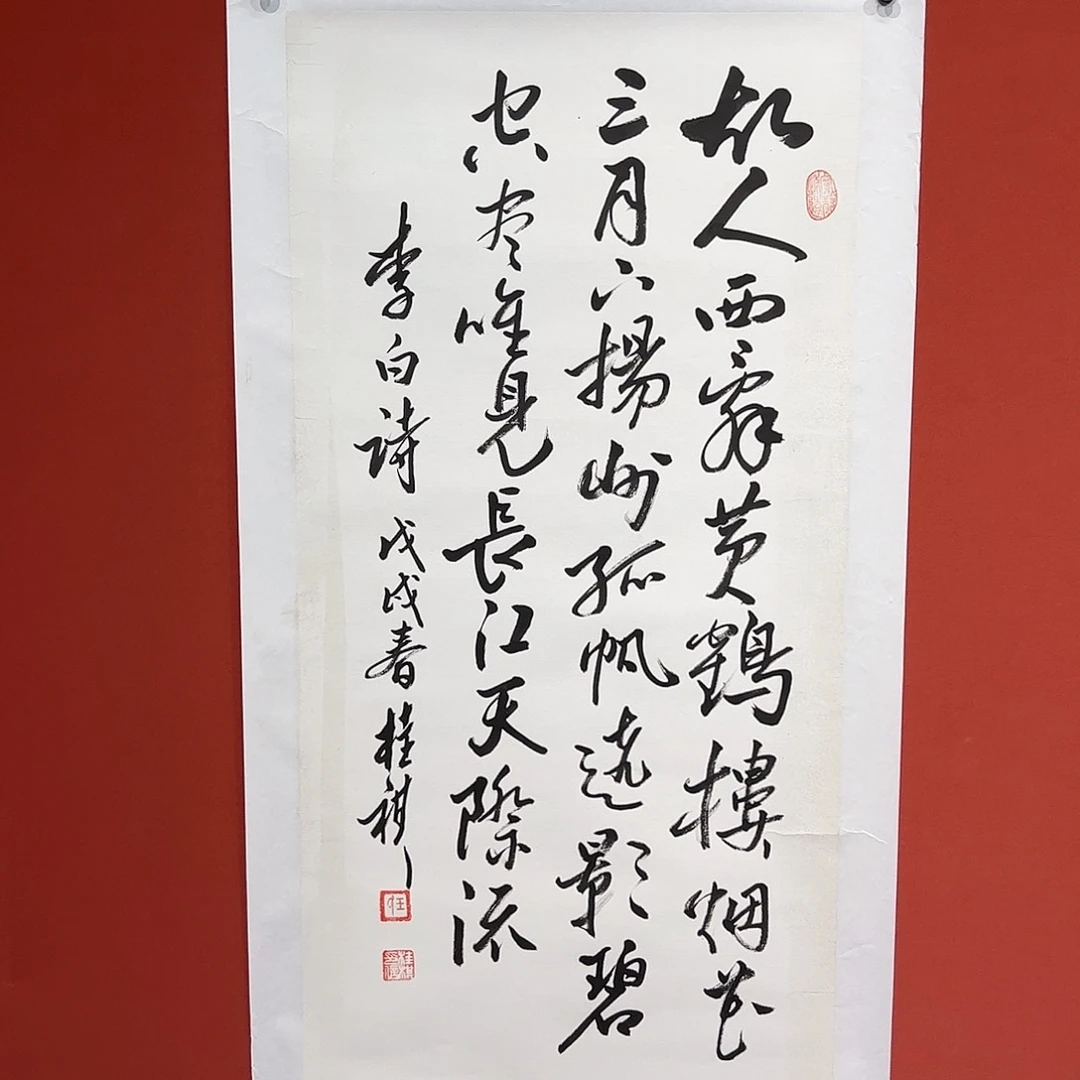 故人西辞黄鹤樓烟花
三月下揚州孤帆遠影碧
空尽唯見長江天際流
李白诗 戊戌春 桂祺